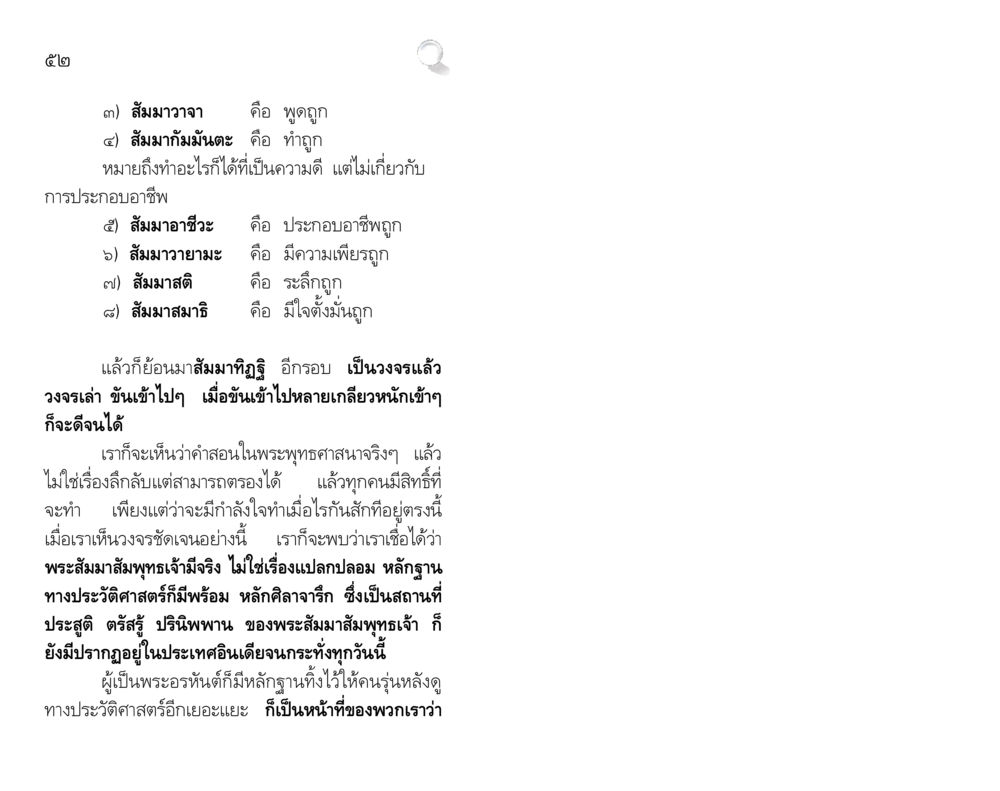 ๕๒
๓) สัมมาวาจา คือ พูดถูก
๔) สัมมากัมมันตะ คือ ทำถูก
หมายถึงทำอะไรก็ได้ที่เป็นความดี แต่ไม่เกี่ยวกับ
การประกอบอาชีพ
๕) สัมมาอาชีวะ คือ ประกอบอาชีพถูก
๖) สัมมาวายามะ คือ มีความเพียรถูก
๗) สัมมาสติ คือ ระลึกถูก
๘) สัมมาสมาธิ คือ มีใจตั้งมั่นถูก
แล้วก็ย้อนมาสัมมาทิฏฐิ อีกรอบ เป็นวงจรแล้ว
วงจรเล่า ขันเข้าไปๆ เมื่อขันเข้าไปหลายเกลียวหนักเข้าๆ
ก็จะดีจนได้
เราก็จะเห็นว่าคำสอนในพระพุทธศาสนาจริงๆ แล้ว
ไม่ใช่เรื่องลึกลับแต่สามารถตรองได้ แล้วทุกคนมีสิทธิ์ที่
จะทำ เพียงแต่ว่าจะมีกำลังใจทำเมื่อไรกันสักทีอยู่ตรงนี้
เมื่อเราเห็นวงจรชัดเจนอย่างนี้ เราก็จะพบว่าเราเชื่อได้ว่า
พระสัมมาสัมพุทธเจ้ามีจริง ไม่ใช่เรื่องแปลกปลอม หลักฐาน
ทางประวัติศาสตร์ก็มีพร้อม หลักศิลาจารึก ซึ่งเป็นสถานที่
ประสูติ ตรัสรู้ ปรินิพพาน ของพระสัมมาสัมพุทธเจ้า ก็
ยังมีปรากฏอยู่ในประเทศอินเดียจนกระทั่งทุกวันนี้
ผู้เป็นพระอรหันต์ก็มีหลักฐานทิ้งไว้ให้คนรุ่นหลังดู
ทางประวัติศาสตร์อีกเยอะแยะ ก็เป็นหน้าที่ของพวกเราว่า